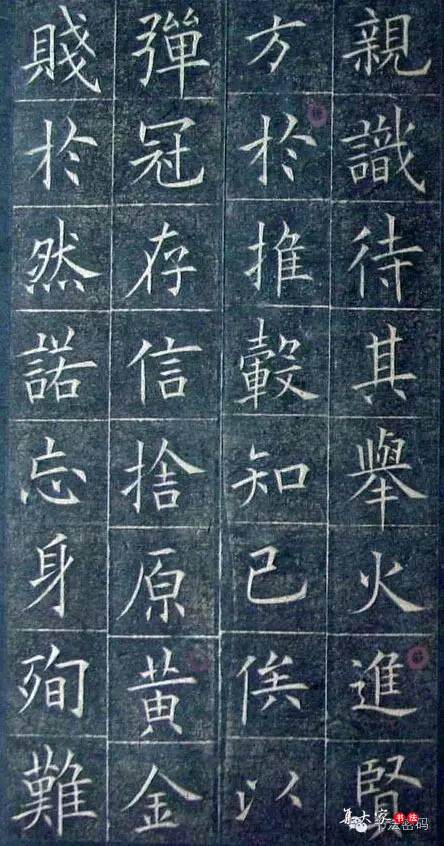 親識待其舉火進賢
方於推轂知己俟以
彈冠存信捨原黃金
賤於然諾忘身殉難
集大家书法
书法密码